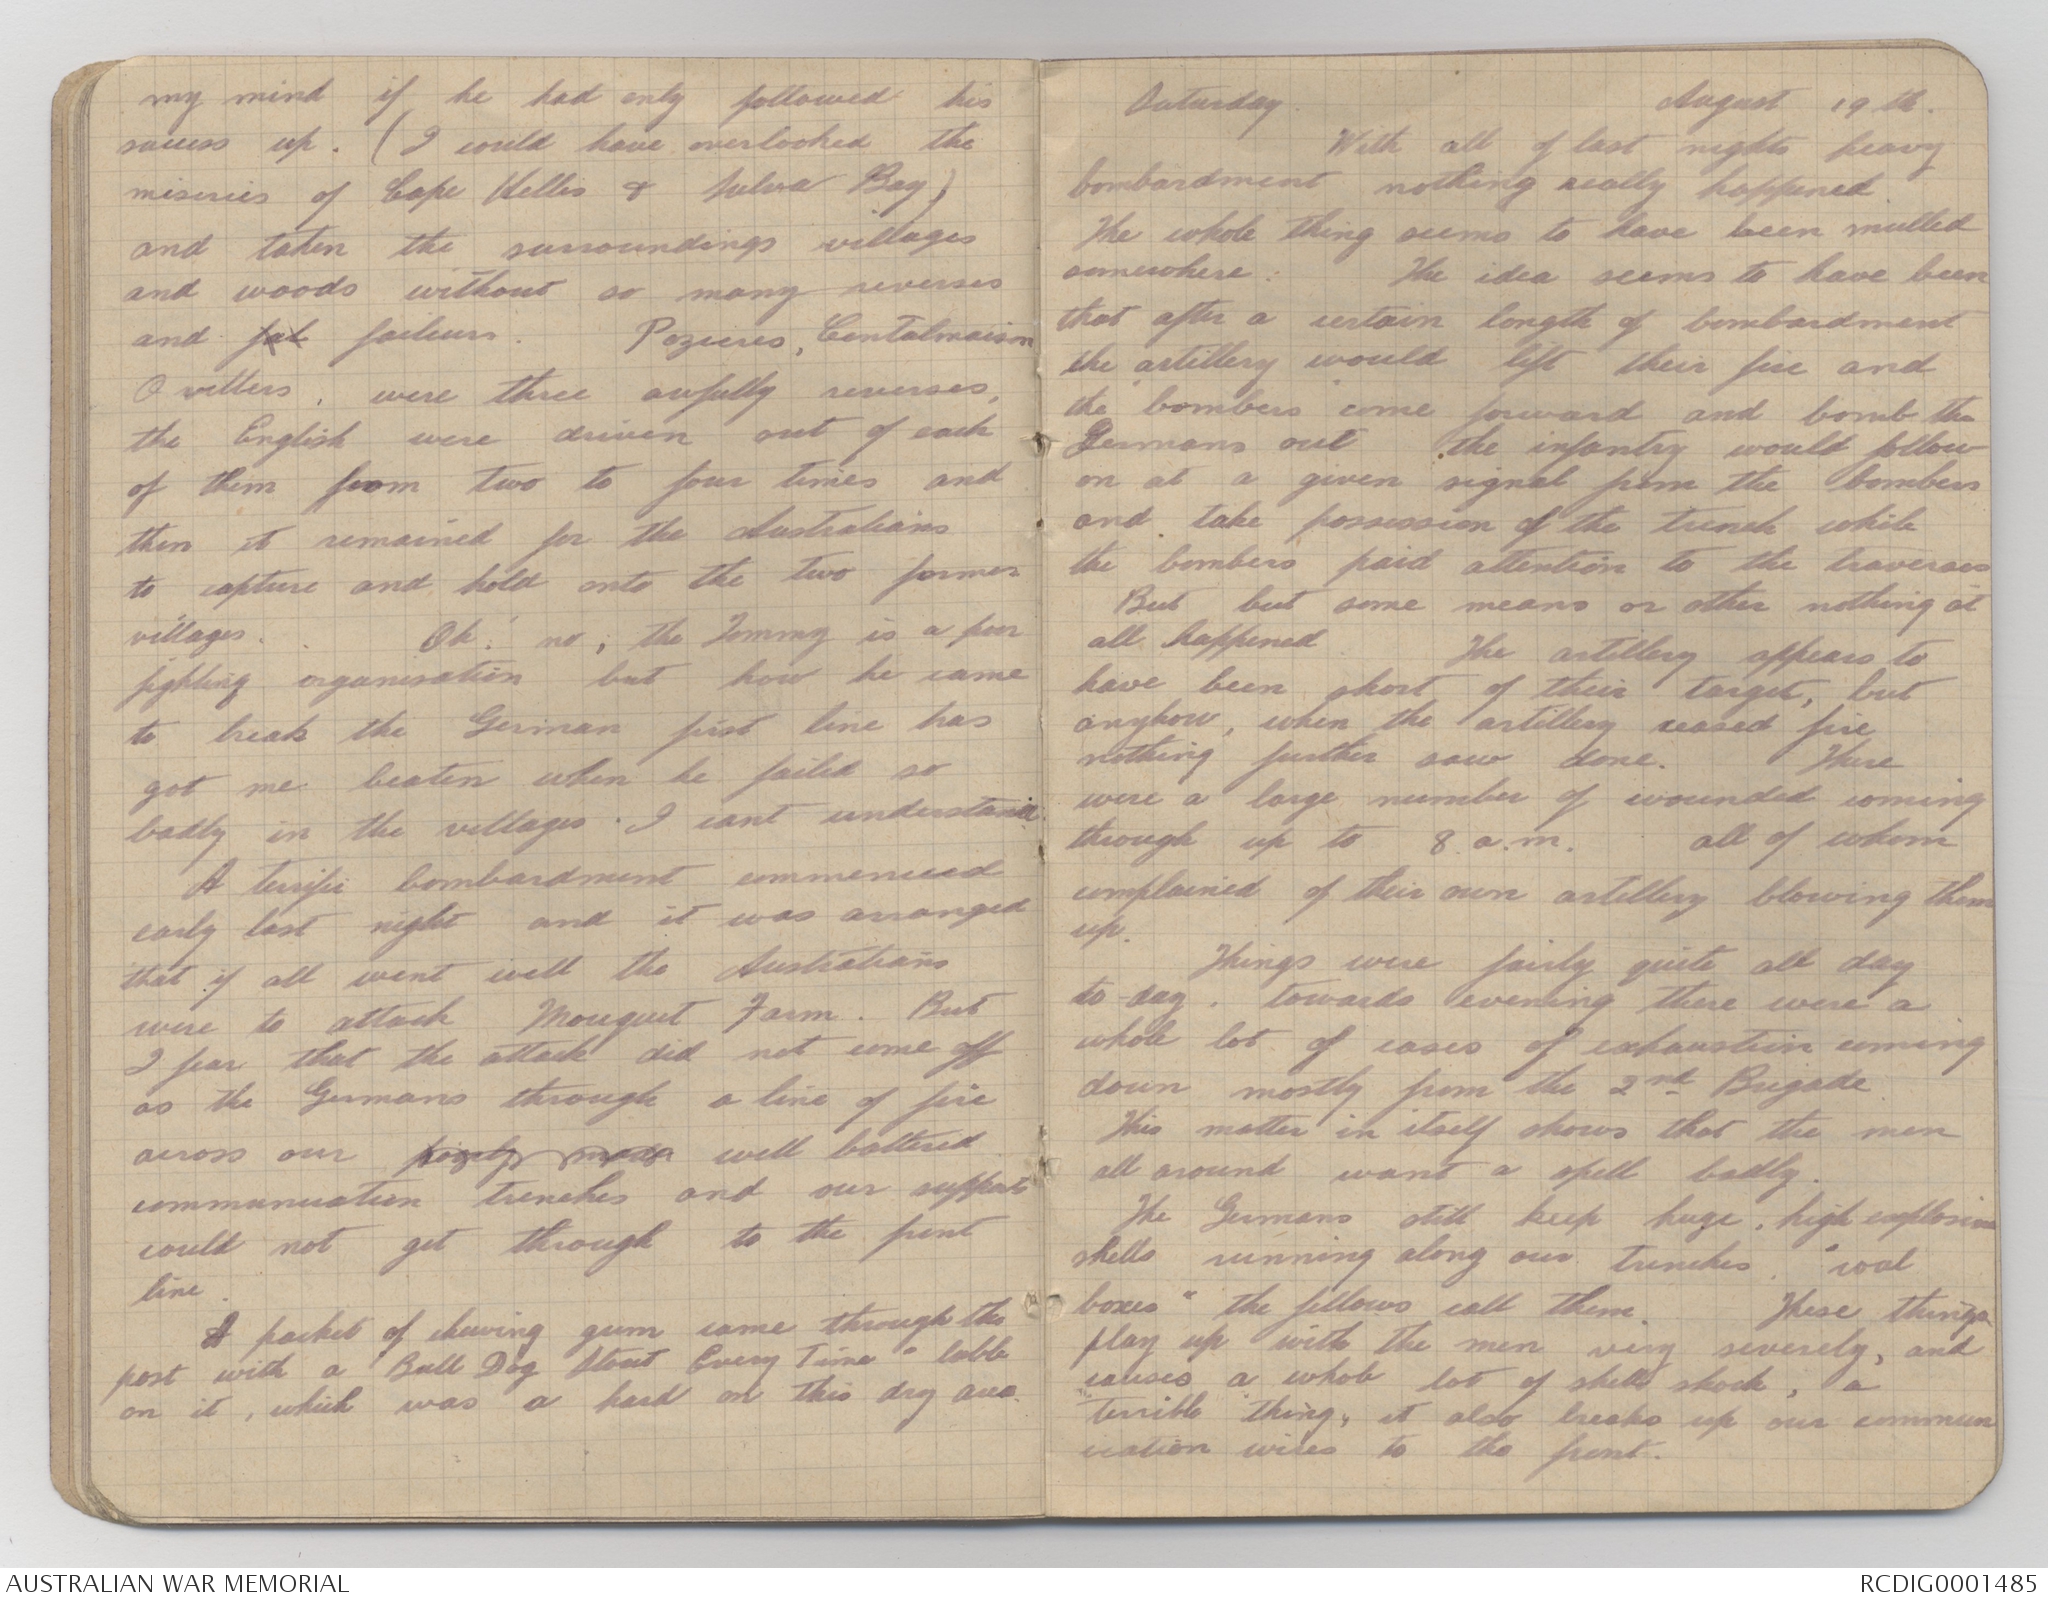 my mind if he had only followed his
sucess up. (I could have overlooked the
miseries of Cape Hellis & Sulva Bay)
and taken the surroundings villages
and woods without so many reverses
and fal faileurs. Pozieres, Contalmaison
Ovillers, were three awfully reverses,
the English were driven out of each
of them from two to four times and
then it remained for the Australians
to capture and hold onto the two former
villages. Oh! no, the Tommy is a poor
fighting organisation but how he came
to break the German first line has
got me beaten when he failed so
badly in the villages. I cant understand
A terrific bombardment commenced
early last night and it was arranged
that if all went well the Australians
were to attack Mouquet Farm. But
I fear that the attack did not come off
as the Germans through a line of fire
across our well battered
communication trenches and our supports
could not get through to the front
line.
A packet of chewing gum came through the
post with a Bull Dog Stout Every Time" lable
on it, which was a hard on this dry area.
Saturday. August 19th.
With all of last nights heavy
bombardment nothing really happened
The whole thing seems to have been mulled
somewhere: The idea seems to have been
that after a certain length of bombardment
the artillery would lift their fire and
the bombers come forward and bomb the
Germans out the infantry would follow
on at a given signal from the bombers
and take possession of the trench while
the bombers paid attention to the traverses
But but some means or other nothing at
all happened. The artillery appears to
have been short of their target, but
anyhow, when the artillery ceased fire
nothing further saw done. There
were a large number of wounded coming
through up to 8 a.m. all of whom
complained of their own artillery blowing them
up.
Things were fairly quite all day
to-day. towards evening there were a
whole lot of cases of exhaustion coming
down mostly from the 2nd Brigade.
This matter in itself shows that the men
all around want a spell badly.
The Germans still keep huge, high explosive
shells running along our trenches. "coal
boxes" the fellows call them. These things
play up with the men very severely, and
causes a whole lot of shell shock, a
terrible thing, it also breaks up our commun
ication wires to the front.
AUSTRALIAN WAR MEMORIAL
RCDIG0001485